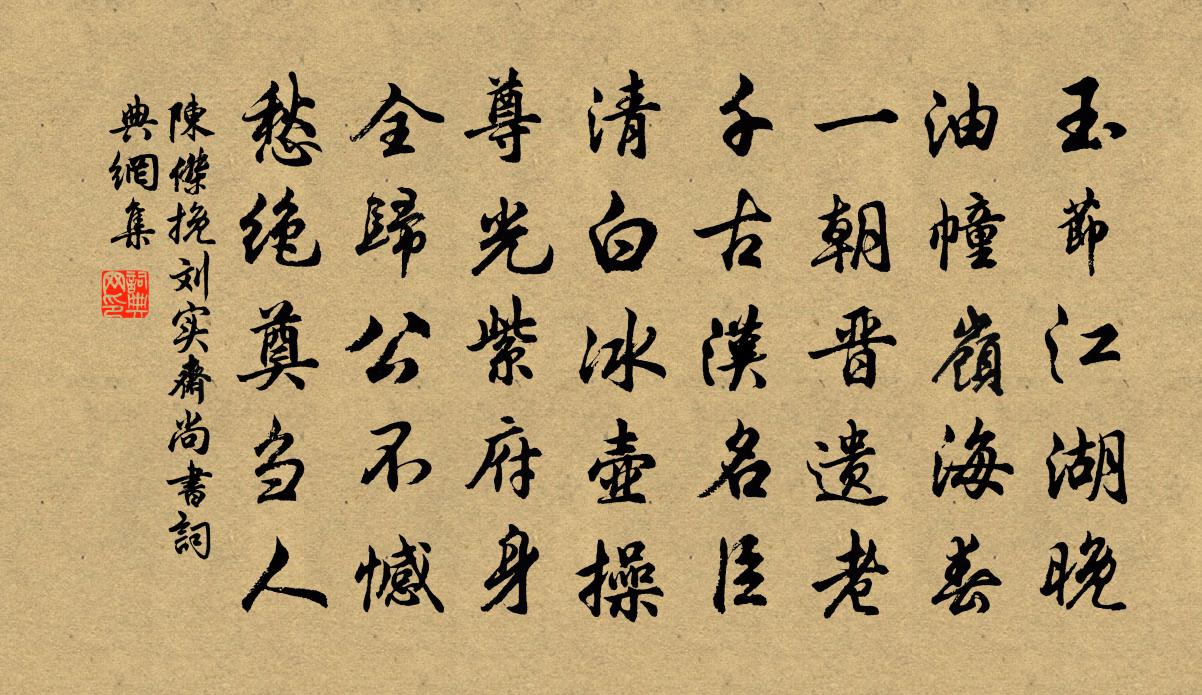 玉節江湖晚
油幢嶺海春
一朝晋遗老
千古漢名臣
清白冰壶操
尊光紫府身
全歸公不憾
愁绝奠刍人
陳傑挽刘实斋尚書詞
典網集
詞典网印